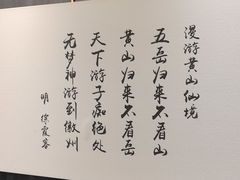 漫游黄山仙境
五岳归来不看山
黄山归来不看岳
天下游子痴绝处
无梦神游到徽州
明 徐霞客